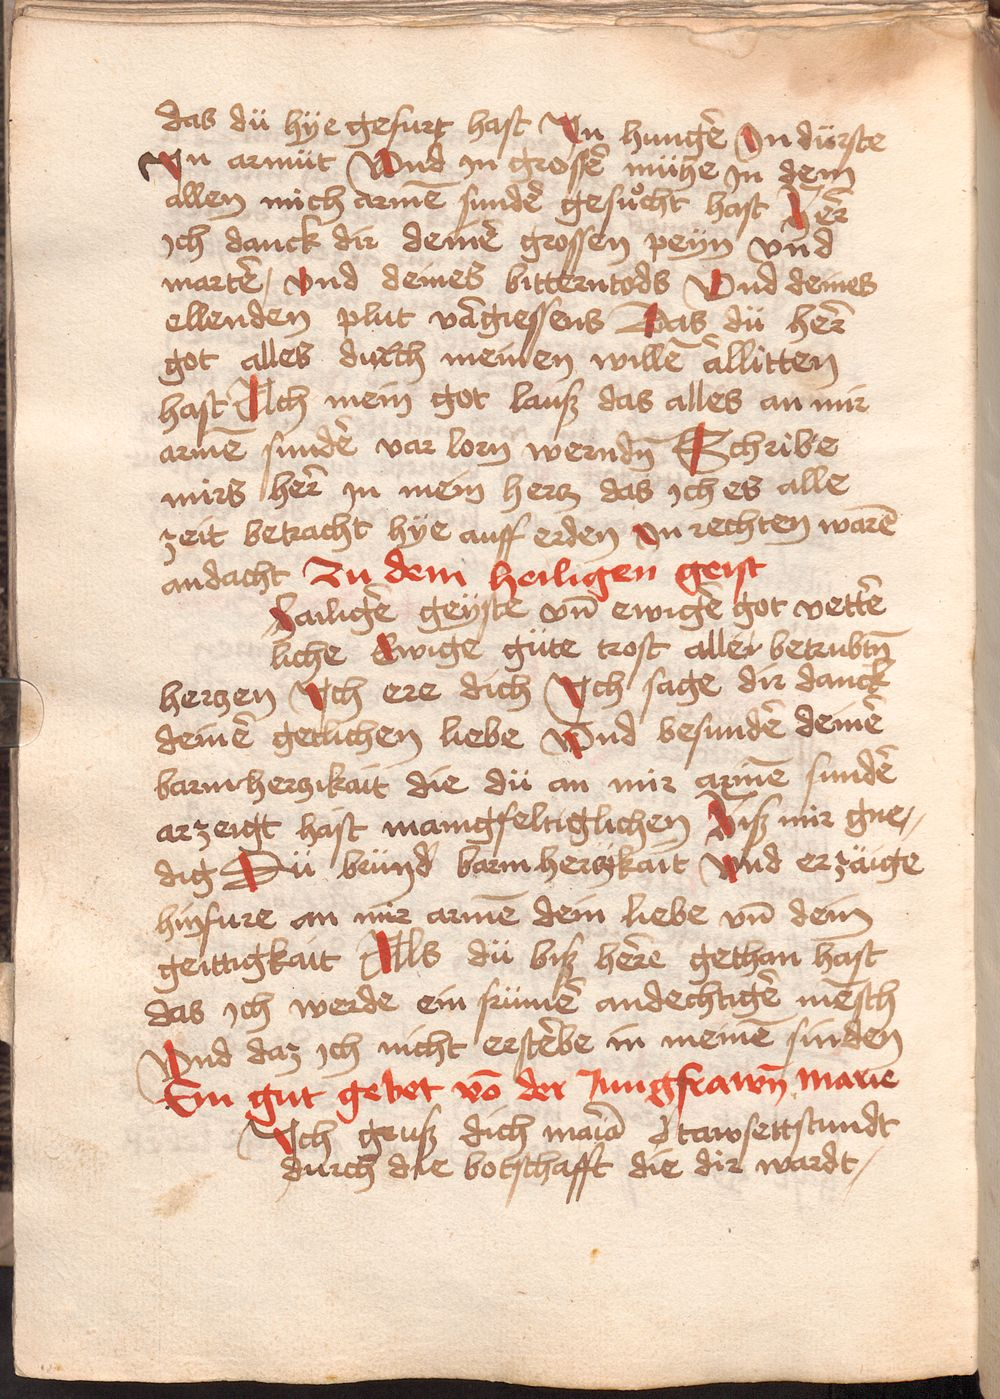 das dü hÿe gefurt hast In hungẽ In dürste
In armüt Vnd jn grossẽ mühe In dem
allen mich armẽ sundẽ gesůcht hast Hẽr
jch danck dir deinẽ grossen peÿn vnd
martẽ / vnd deines bitterntods Vnd deines
ellenden plut vãgiessens Das dü herr̃
got alles durch meinen willẽ ãllitten
hast Ach mein got lauß das alles an mir
armẽ sundẽ var lorn werndñ Schribe
mirs her̃ jn mein hertz das jch es alle
zeit betracht hÿe auff erden In rechten warẽ
andacht Zu dem heiligen geist
Hailigẽ geÿste vñ ewigẽ got vettẽ
liche Ewige güte trost aller betrubtñ
hertzen Ich ere dich Ich sage dir danck
deinẽ getlichen liebe Vnd besundẽ deinẽ
barmhertzikait die dü an mir armẽ sundẽ
arzeigt hast manigfeltiglichen Biß mir gne//
dig Dü bründ̃ barmhertzkait Vnd erzäige
hinfure an mir armẽ dein liebe vñ dein
geittigkait Alls dü biß hẽre gethan hast
das jch werde ein frümẽ andechtigẽ mẽsch
Vnd daz jch nicht erstẽbe in meinẽ sunden
Ein gut gebet võ der Jungfrawñ Marie
Ich gruß dich mariã tawsettstundt
durch die botschafft die dir wardt /